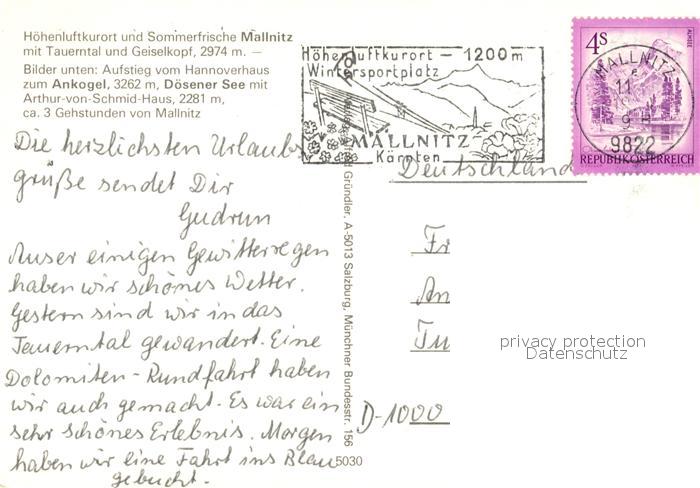 Höhenluftkurort und Sommerfrische Mallnitz
mit Tauerntal und Geiselkopf, 2974 m. —
Bilder unten: Aufstieg vom Hannoverhaus
zum Ankogel, 3262 m, Dösener See mit
Arthur-von-Schmid-Haus, 2281 m,
ca. 3 Gehstunden von Mallnitz
Die herzlichsten Urlaubs
grüße sendet Dir
Gudrun
Ausser einigen Gewitterregen
haben wir schönes Wetter.
Gestern sind wir in das
Tauerntal gewandert. Eine
Dolomiten-Rundfahrt haben
wir auch gemacht. Es war ein
sehr schönes Erlebnis. Morgen
haben wir eine Fahrt ins Blaue
gebucht.
Gründler, A-5013 Salzburg, Münchner Bundesstr. 156
5030
Höhenluftkurort – 1200 m
Wintersportplatz
MALLNITZ
Kärnten
4S
ALMSEE
REPUBLIK ÖSTERREICH
MALLNITZ
11
9822
Deutschland
Fr
An
Tu
D-1000
privacy protection
Datenschutz